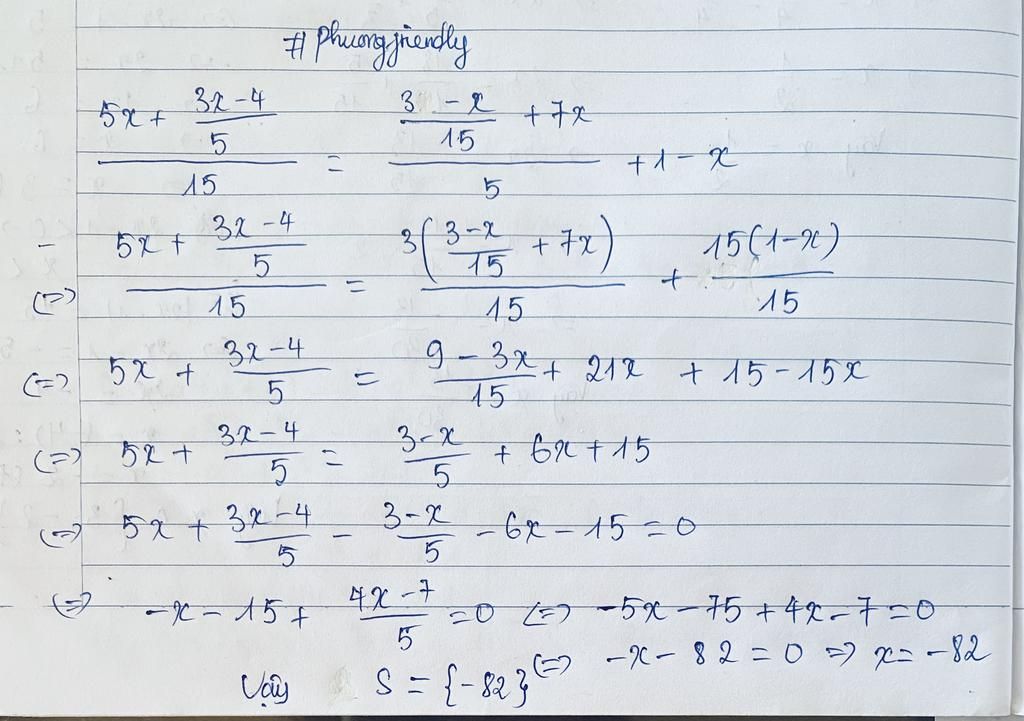 #phuongfriendly
(5x + (3x-4)/5)/15 = ((3-x)/15 + 7x)/5 + 1 - x
- (=) (5x + (3x-4)/5)/15 = 3((3-x)/15 + 7x)/15 + 15(1-x)/15
(=) 5x + (3x-4)/5 = (9-3x)/15 + 21x + 15 - 15x
(=) 5x + (3x-4)/5 = (3-x)/5 + 6x + 15
(=) 5x + (3x-4)/5 - (3-x)/5 - 6x - 15 = 0
(=) -x - 15 + (4x-7)/5 = 0 (=) -5x - 75 + 4x - 7 = 0
(=) -x - 82 = 0 => x = -82
Vậy S = {-82}